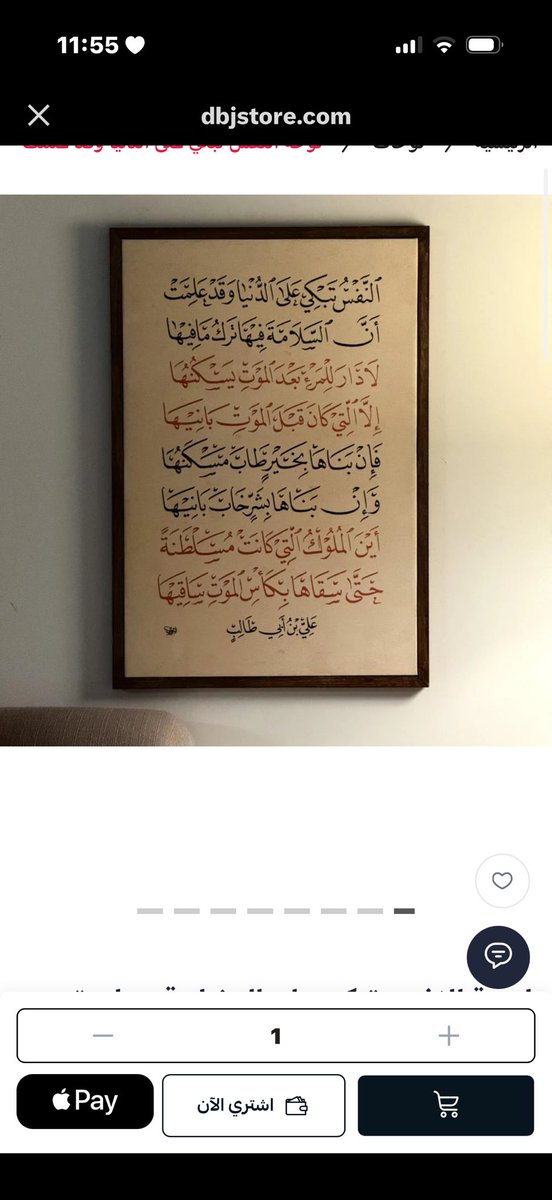 11:55
dbjstore.com
النَّفْسُ تَبْكِي عَلَى الدُّنْيَا وَقَدْ عَلِمَتْ
أَنَّ السَّلَامَةَ فِيهَا تَرْكُ مَا فِيهَا
لَا دَارَ لِلْمَرْءِ بَعْدَ الْمَوْتِ يَسْكُنُهَا
إِلَّا الَّتِي كَانَ قَبْلَ الْمَوْتِ بَانِيهَا
فَإِنْ بَنَاهَا بِخَيْرٍ طَابَ مَسْكَنُهَا
وَإِنْ بَنَاهَا بِشَرٍّ خَابَ بَانِيهَا
أَيْنَ الْمُلُوكُ الَّتِي كَانَتْ مُسَلْطَنَةً
حَتَّى سَقَاهَا بِكَأْسِ الْمَوْتِ سَاقِيهَا
عَلِيُّ بْنُ أَبِي طَالِبٍ
1
Pay
اشتري الآن